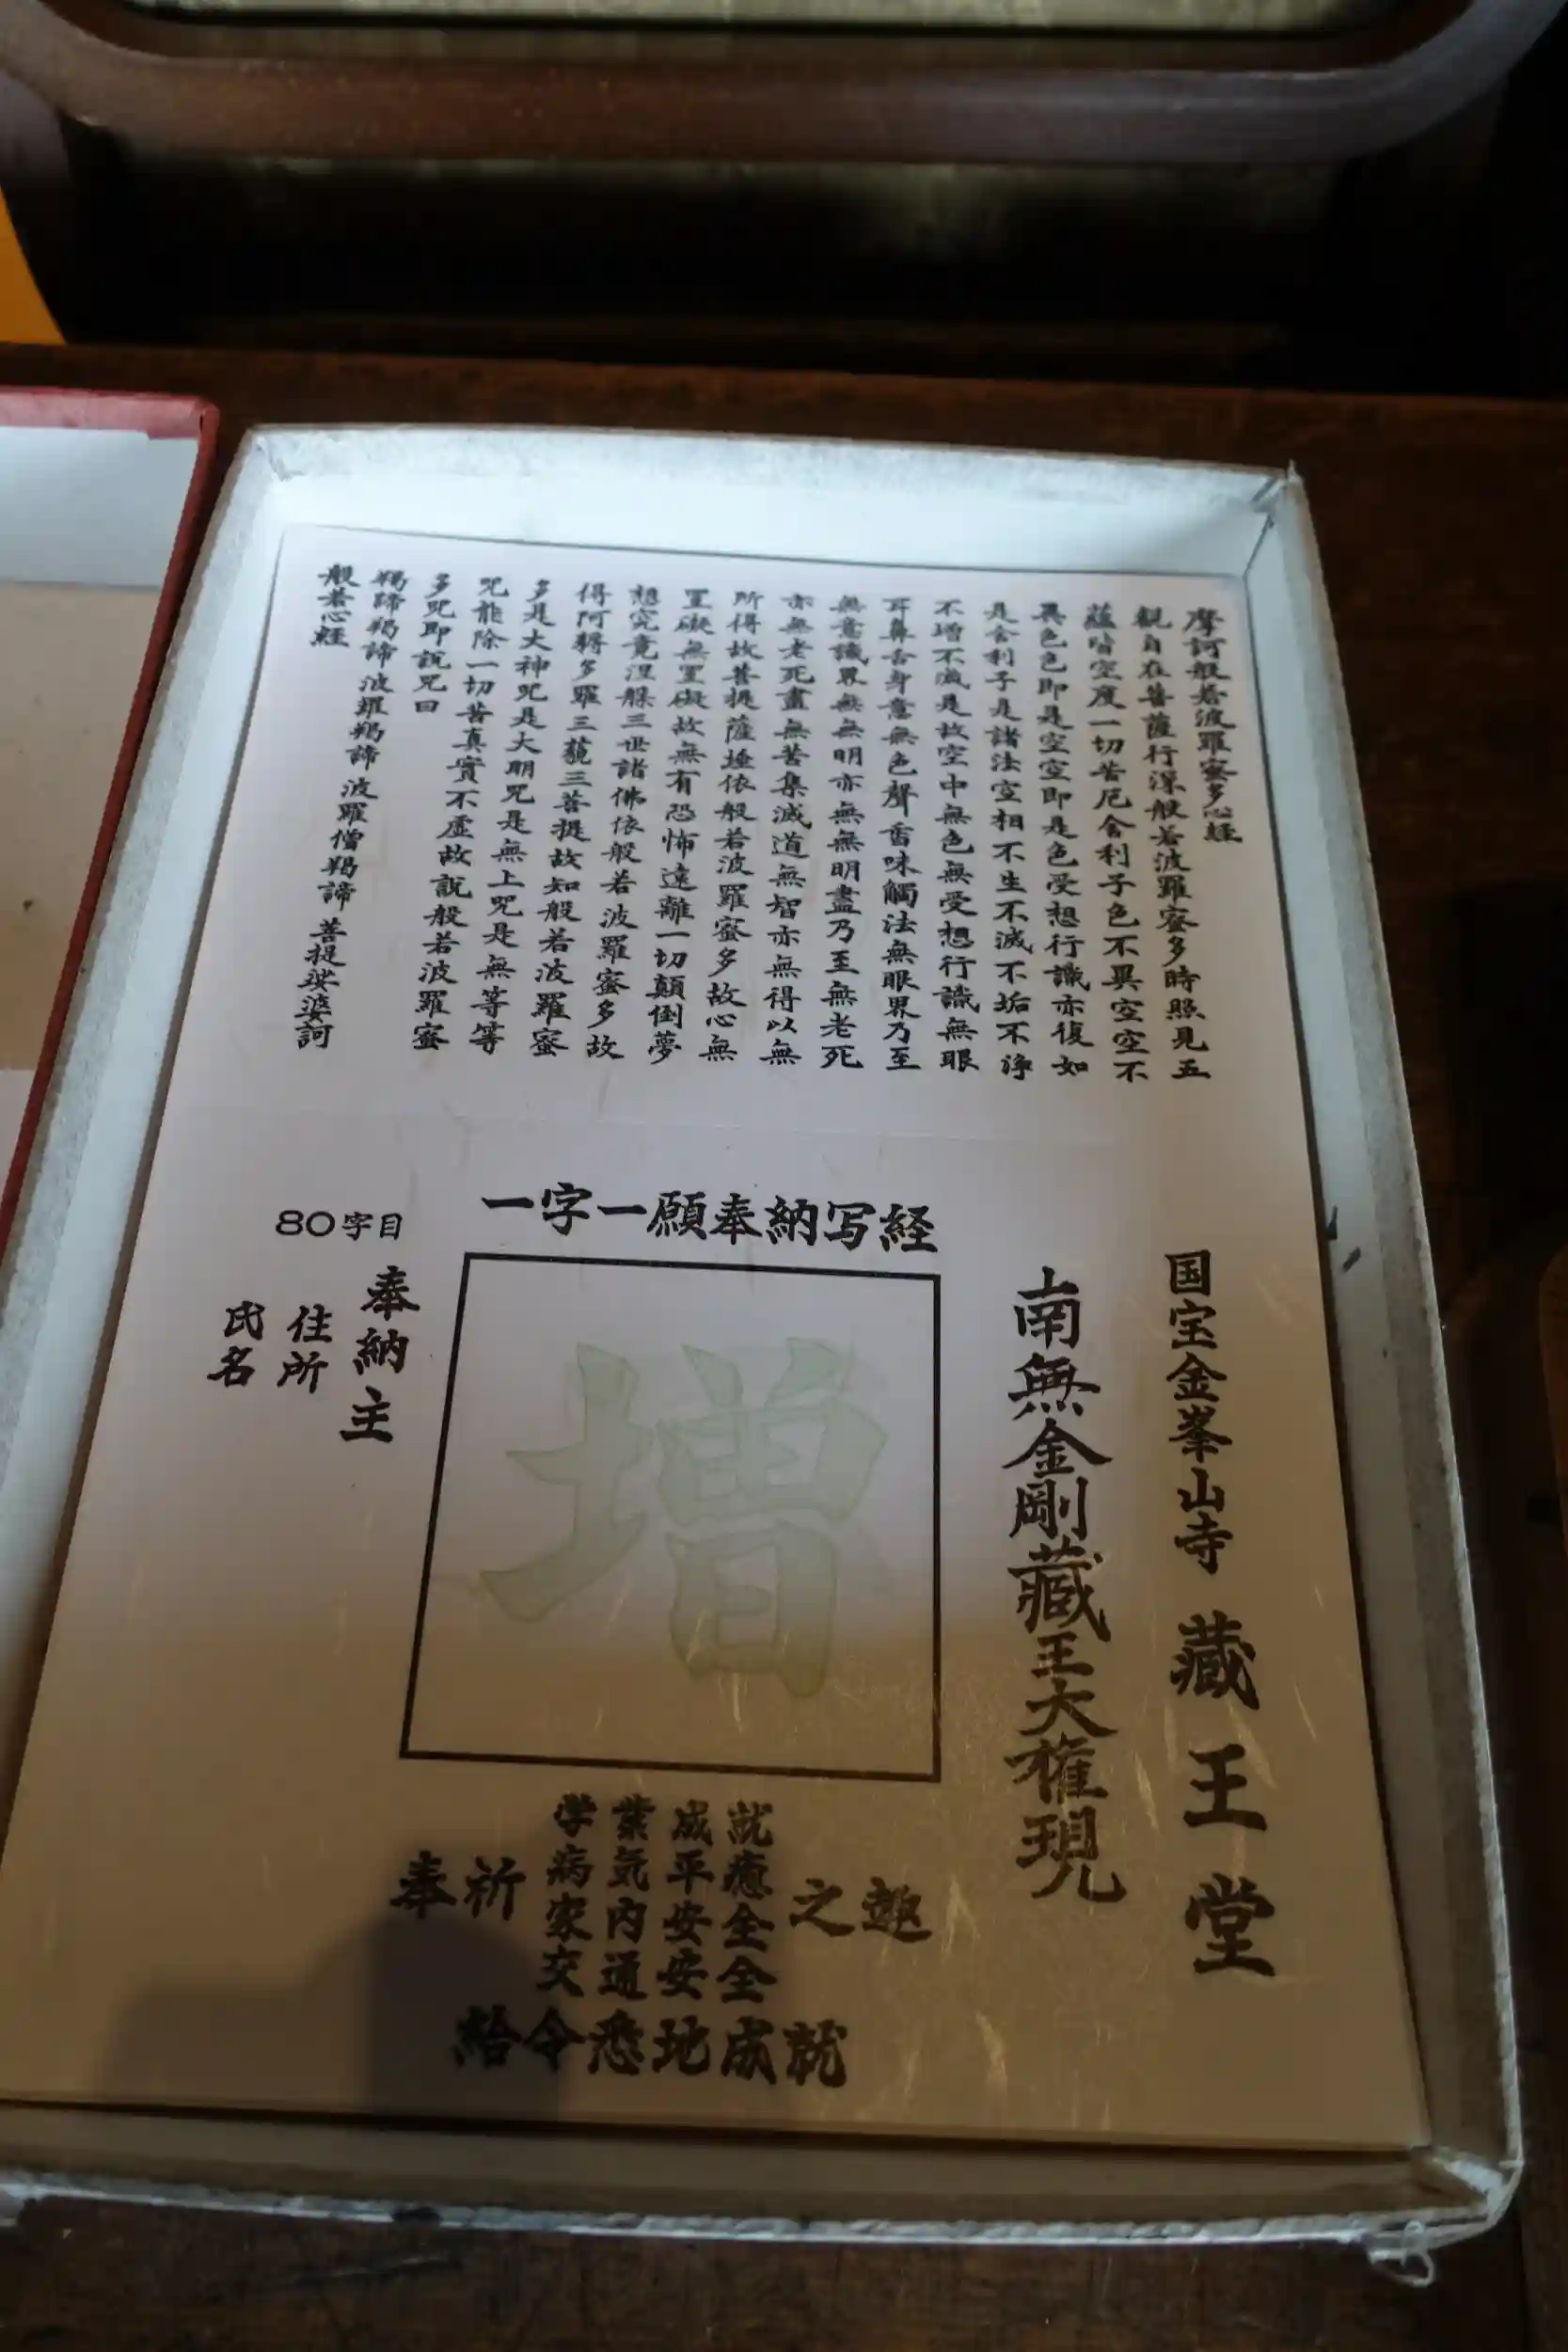 摩訶般若波羅蜜多心経
観自在菩薩行深般若波羅蜜多時照見五
蘊皆空度一切苦厄舎利子色不異空空不
異色色即是空空即是色受想行識亦復如
是舎利子是諸法空相不生不滅不垢不浄
不増不滅是故空中無色無受想行識無眼
耳鼻舌身意無色聲香味觸法無眼界乃至
無意識界無無明亦無無明盡乃至無老死
亦無老死盡無苦集滅道無智亦無得以無
所得故菩提薩埵依般若波羅蜜多故心無
罣礙無罣礙故無有恐怖遠離一切顛倒夢
想究竟涅槃三世諸佛依般若波羅蜜多故
得阿耨多羅三藐三菩提故知般若波羅蜜
多是大神咒是大明咒是無上咒是無等等
咒能除一切苦真實不虚故説般若波羅蜜
多咒即説咒曰
羯諦羯諦 波羅羯諦 波羅僧羯諦 菩提娑婆訶
般若心経
国宝金峯山寺 蔵王堂
南無金剛蔵王大権現
一字一願奉納写経
増
80字目
奉納主
住所
氏名
奉祈
学業成就
病気平癒
家内安全
交通安全
之趣
給令悉地成就